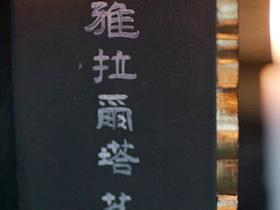 雅拉爾塔